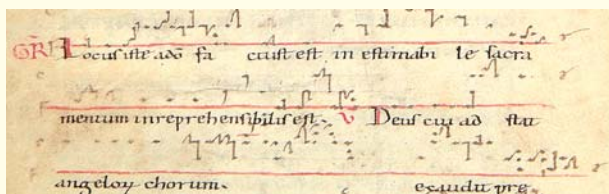 GR Locus iste a dō fa ctus est in estimabi le sacra
mentum inreprehensibilis est. V Deus cui ad stat
angeloꝝ chorum. exaudi pre